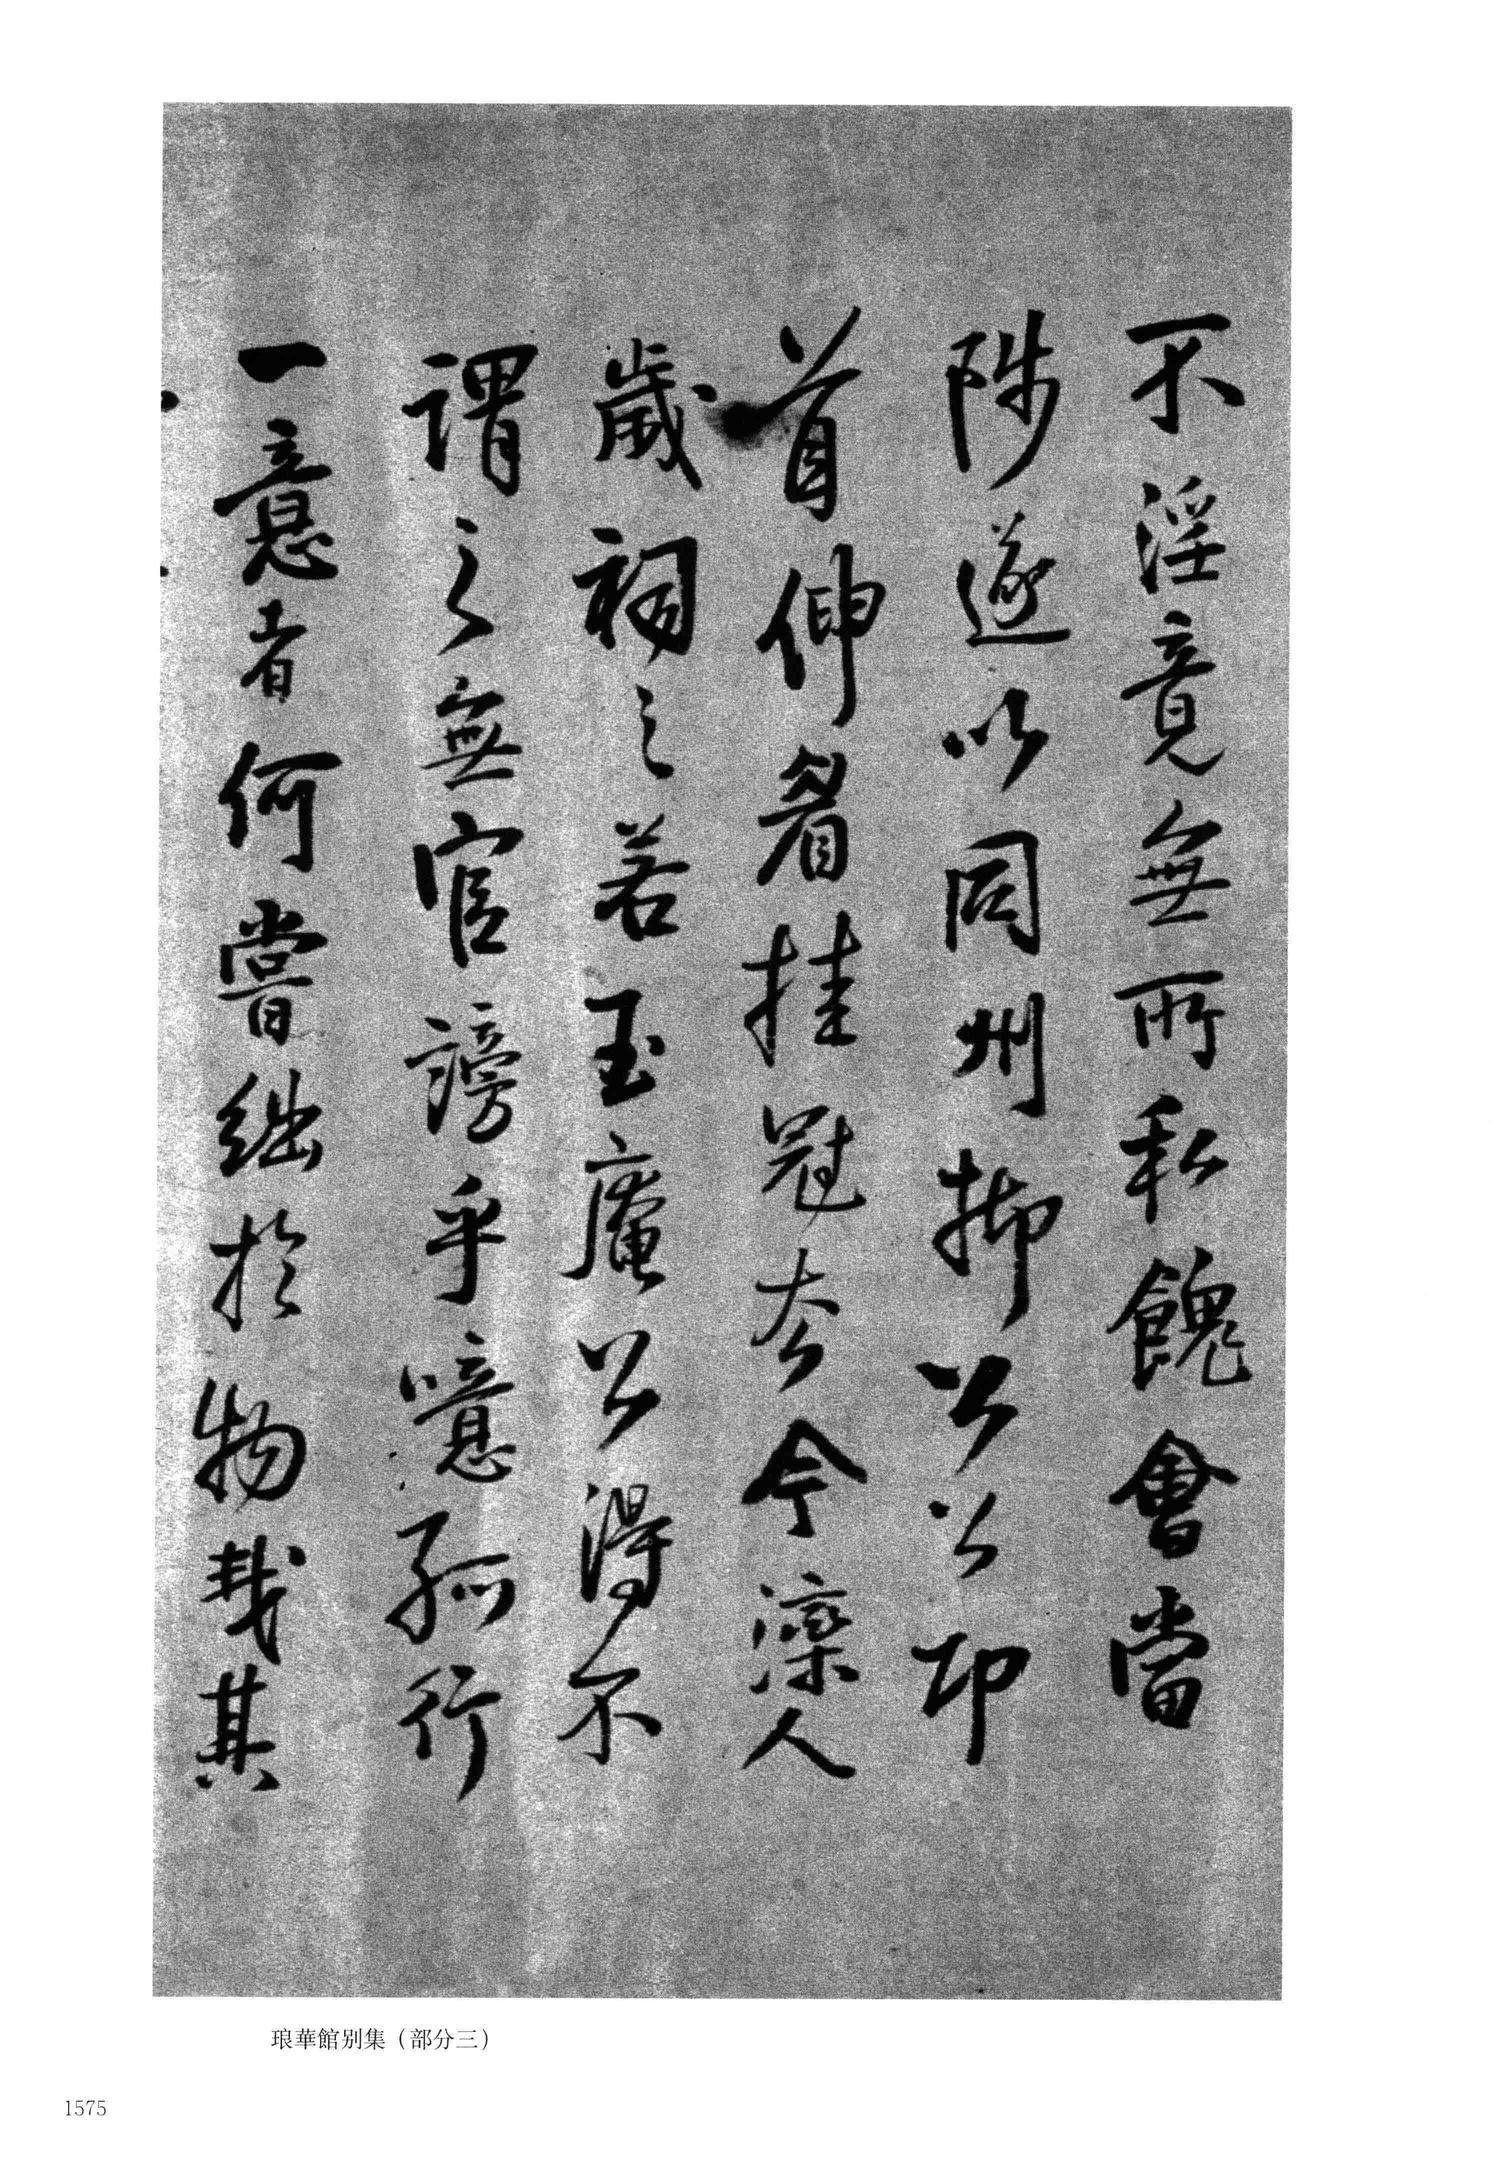 不淫竟無所私餽會當
陟遂以同州抑公公印
首仰眉挂冠去今灤人
歲祠之若玉庵公得不
謂之無官謗乎噫孤行
一意者何嘗絀於物哉其
琅華館别集（部分三）
1575